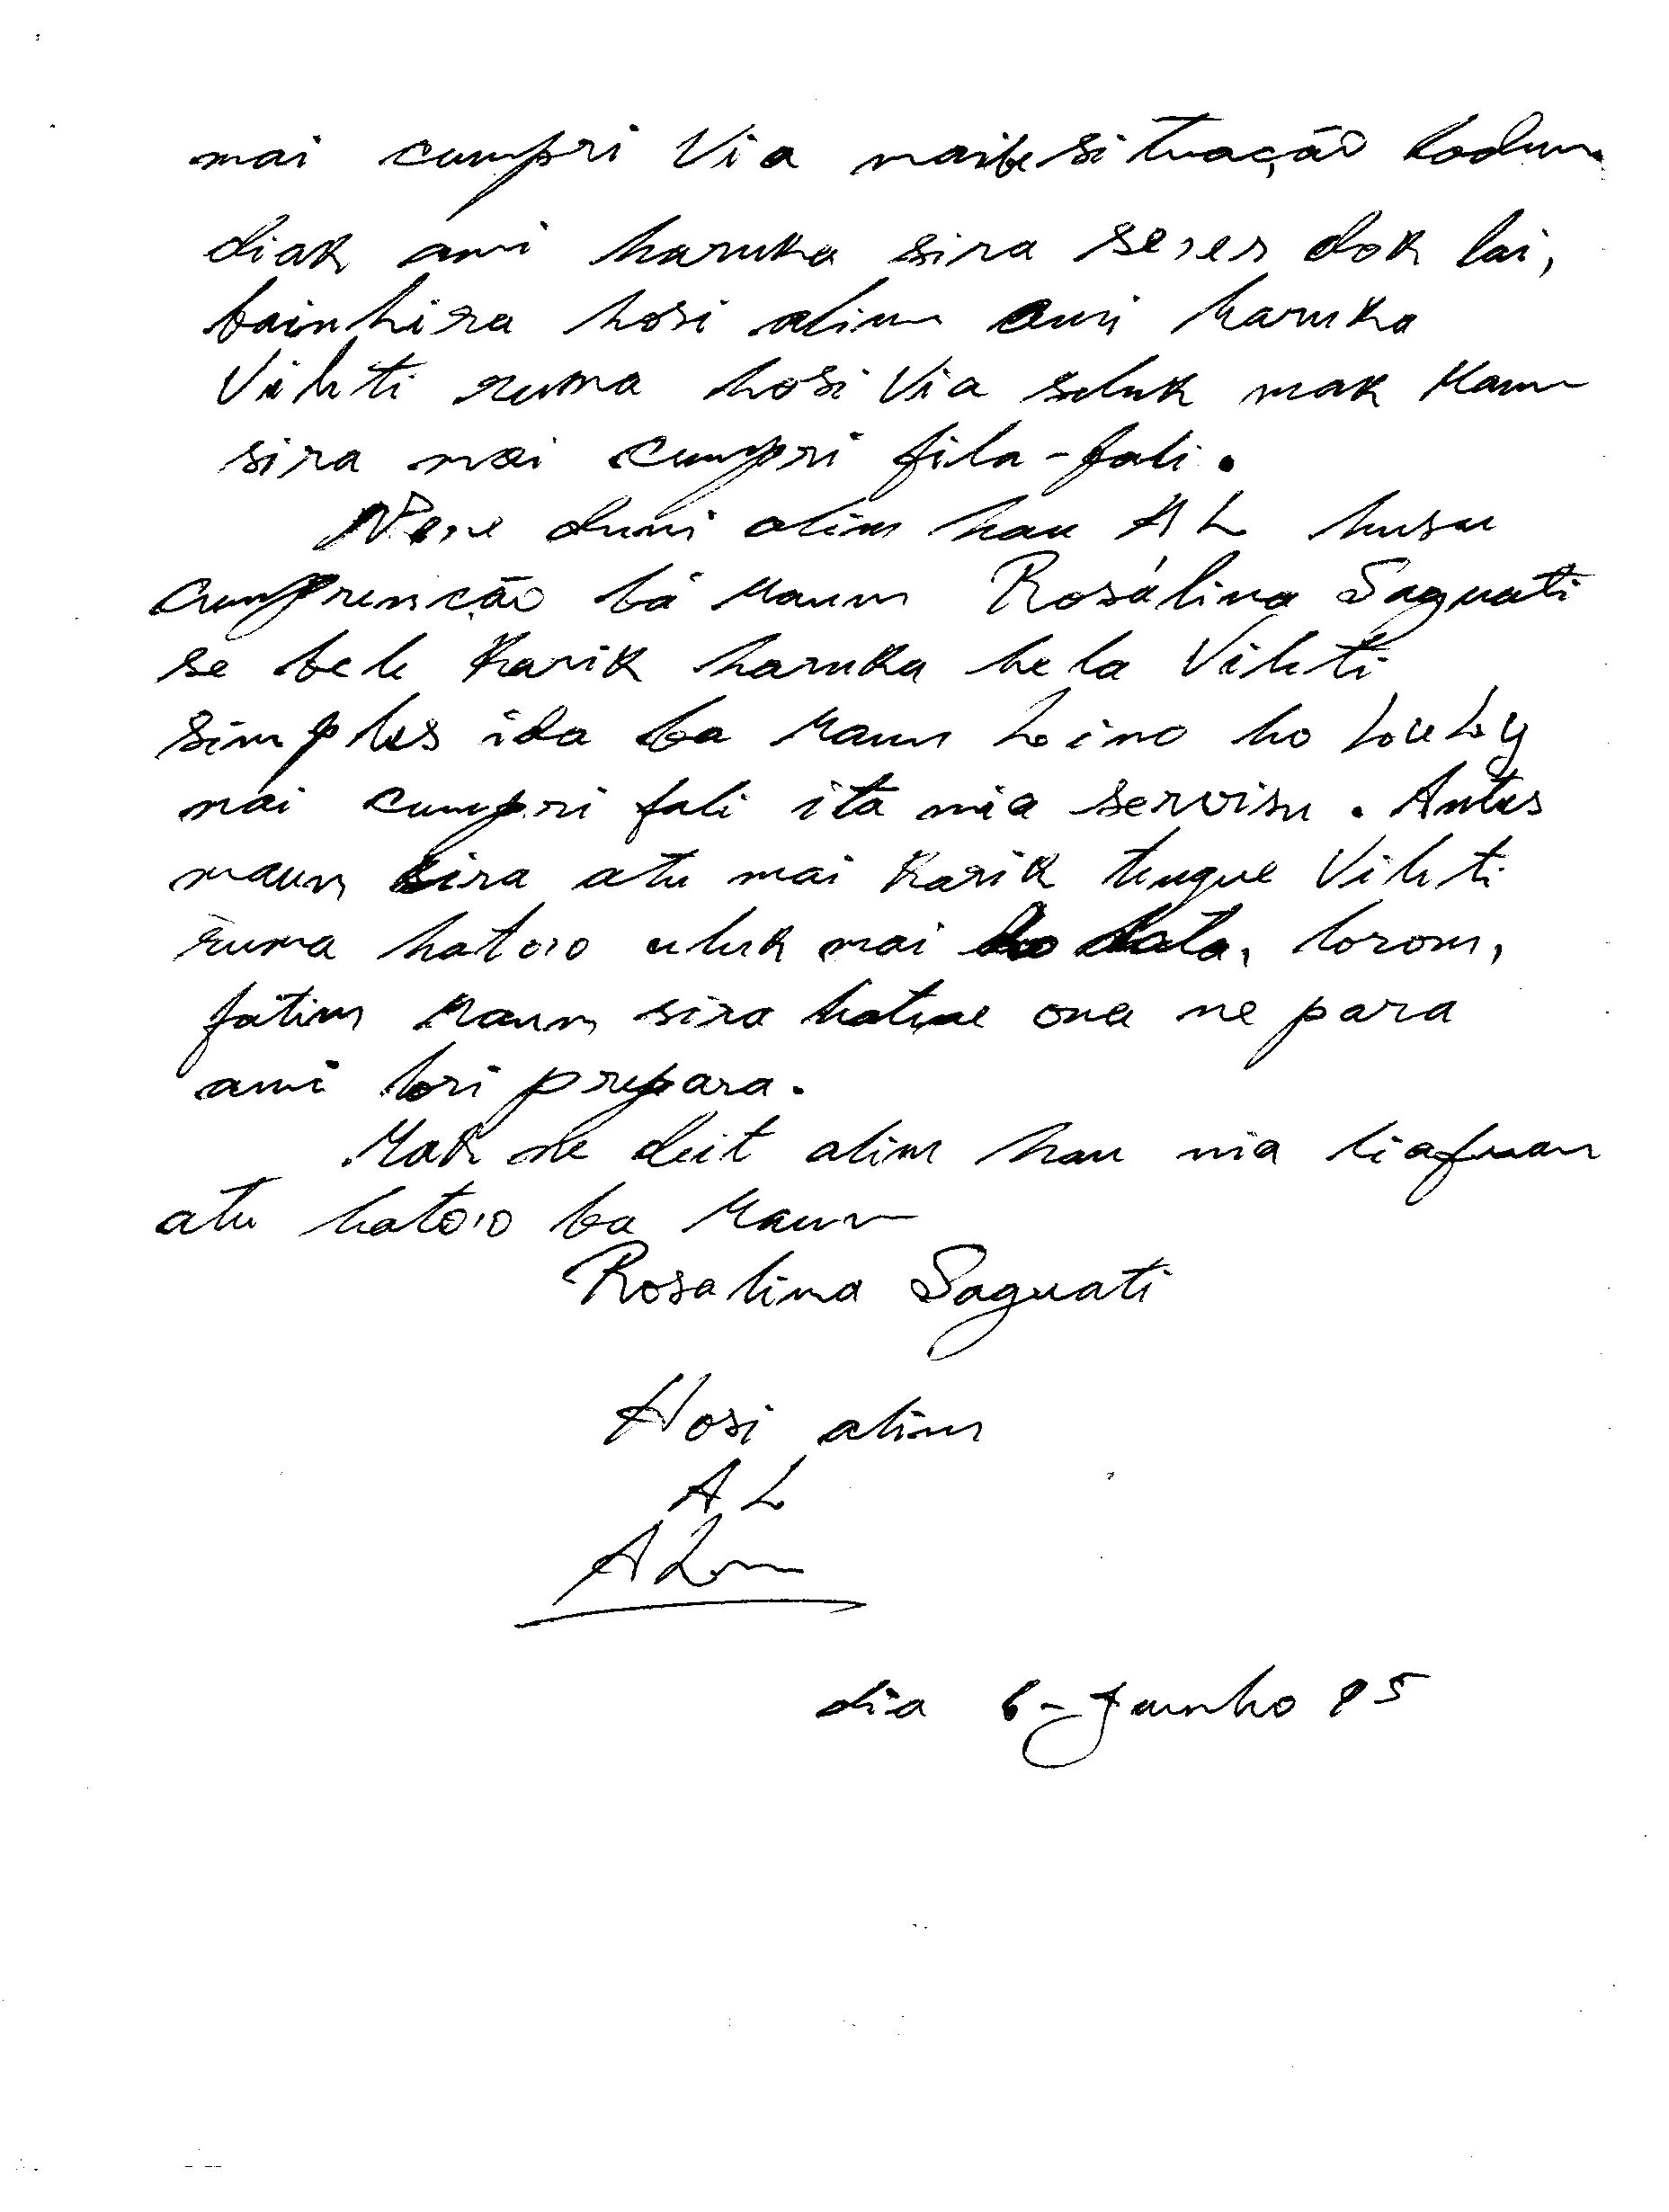 mai cumpri Via maibe situação ladun
diak ami haruka sira se,es dok lai,
bainhira hosi alin ami haruka
Vilheti ruma hosi Via seluk mak Maun
sira mai cumpri fila-fali.
Ne,e duni alin hau AL husu
cumprenção bá Maun Rosálina Saguati
se bele karik haruka hela Vilheti
simples ida ba Maun Leino ho
mai cumpri fali ita nia servisu. Antes
maun sira atu mai karik tenque Vilheti
ruma hato,o uluk mai ho data, loron,
fatin Maun sira hatene ona ne para
ami lori prepara.
Mak ne deit alin hau nia liafuan
atu hato,o ba Maun
Rosalina Saguati
Hosi alin
AL
dia 6-Junho 95